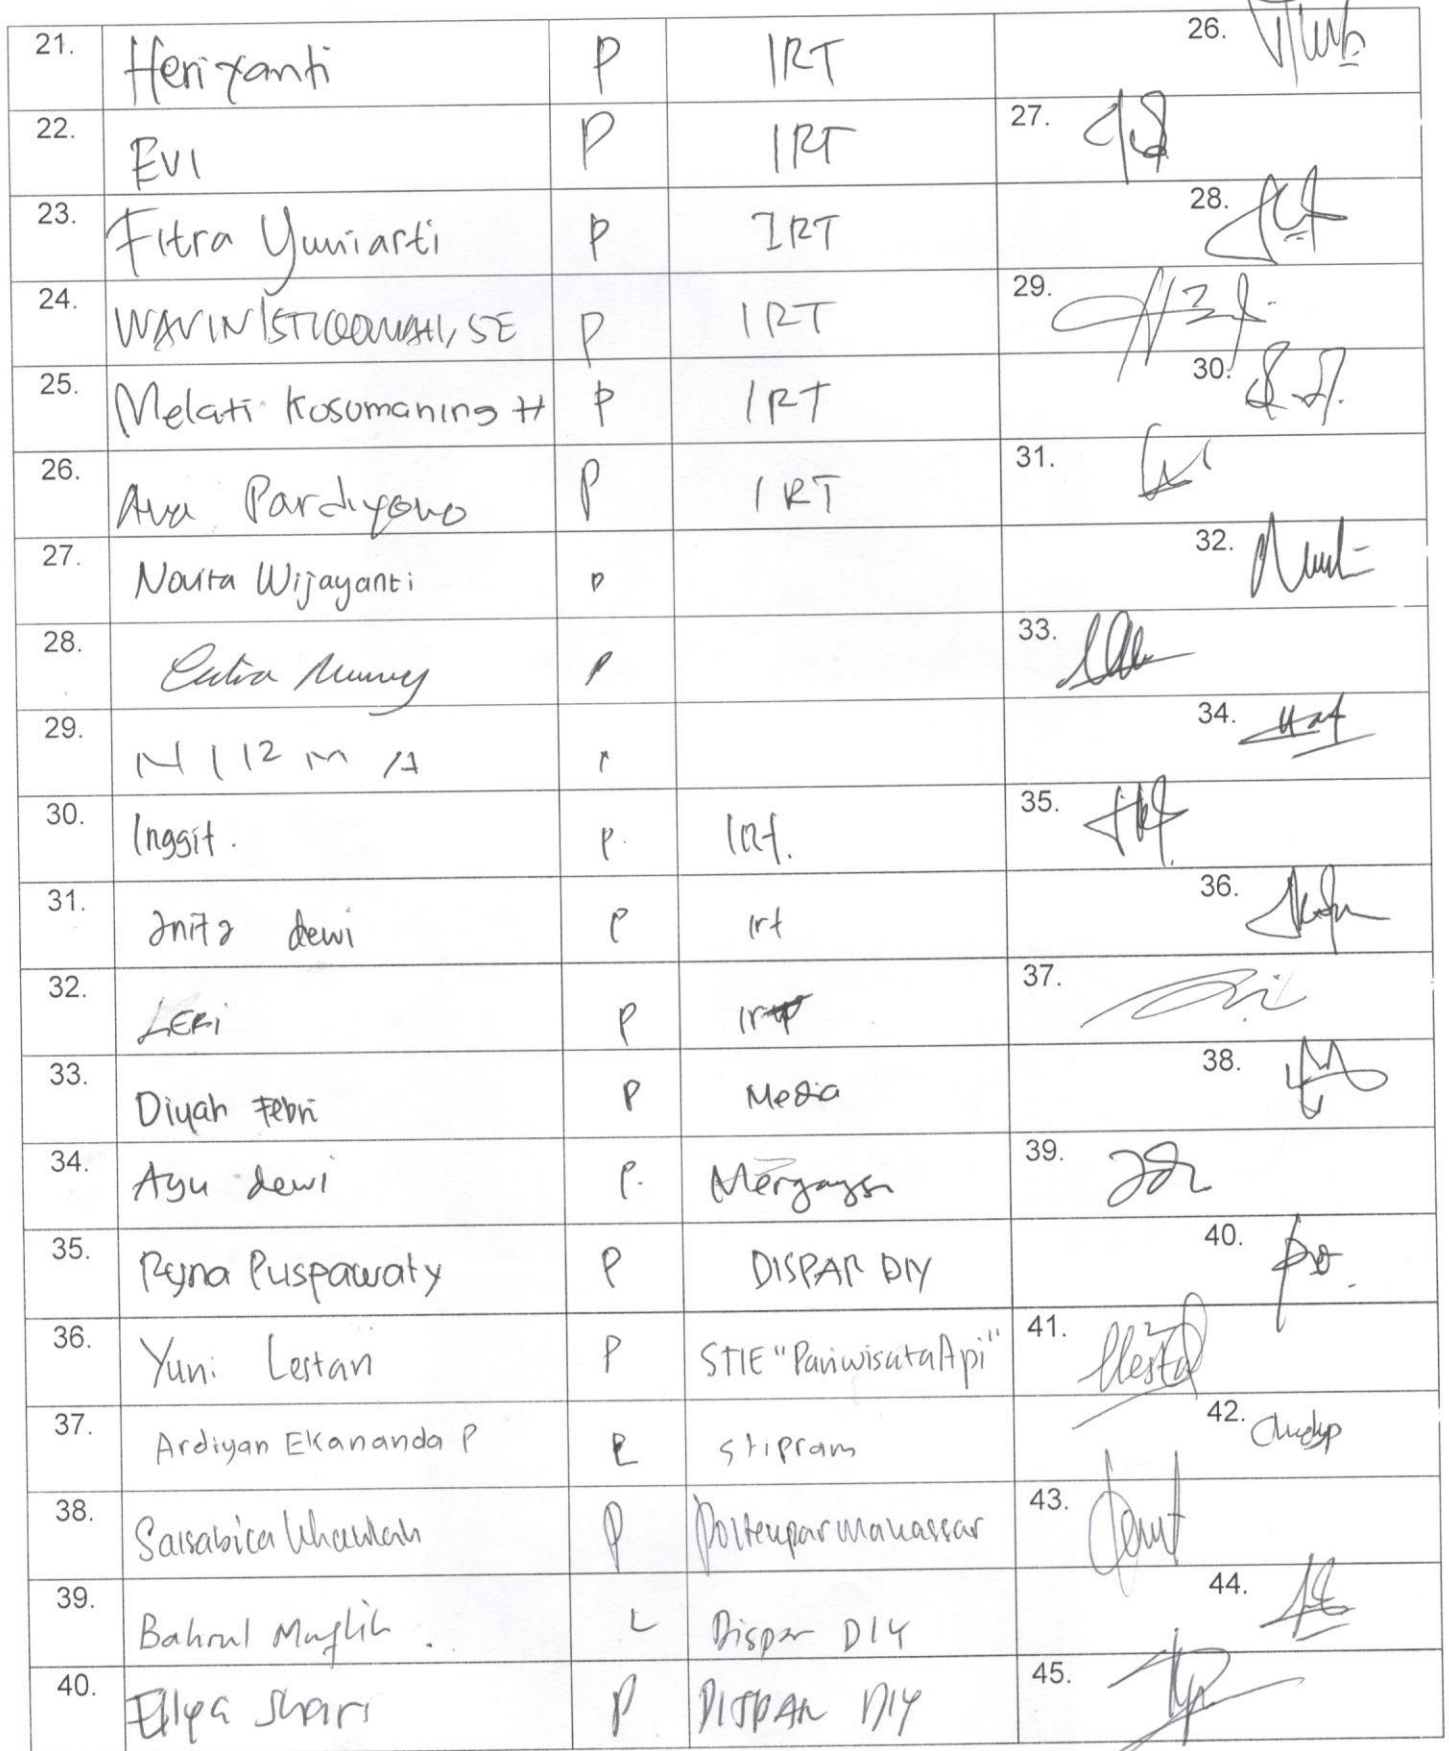 21. Heriyanti P IRT 26.
22. EVI P IRT 27.
23. Fitra Yuniarti P IRT 28.
24. WAVIN ISTIQOMAH, SE P IRT 29.
25. Melati Kosumaning H P IRT 30.
26. Pardiyono P IRT 31.
27. Novita Wijayanti P 32.
28. P 33.
29. 34.
30. Inggit. P. IRt. 35.
31. Anita dewi P Irt 36.
32. P Irt 37.
33. Diyah Febri P Media 38.
34. Ayu dewi P. Mergangsan 39.
35. Ryna Puspawaty P DISPAR DIY 40.
36. Yuni Lestari P STIE "Pariwisata Api" 41.
37. Ardiyan Ekananda P L stipram 42.
38. Salsabila Khaulah P Poltekpar Makassar 43.
39. Bahrul L Dispar DIY 44.
40. Ellya P DISPAR DIY 45.